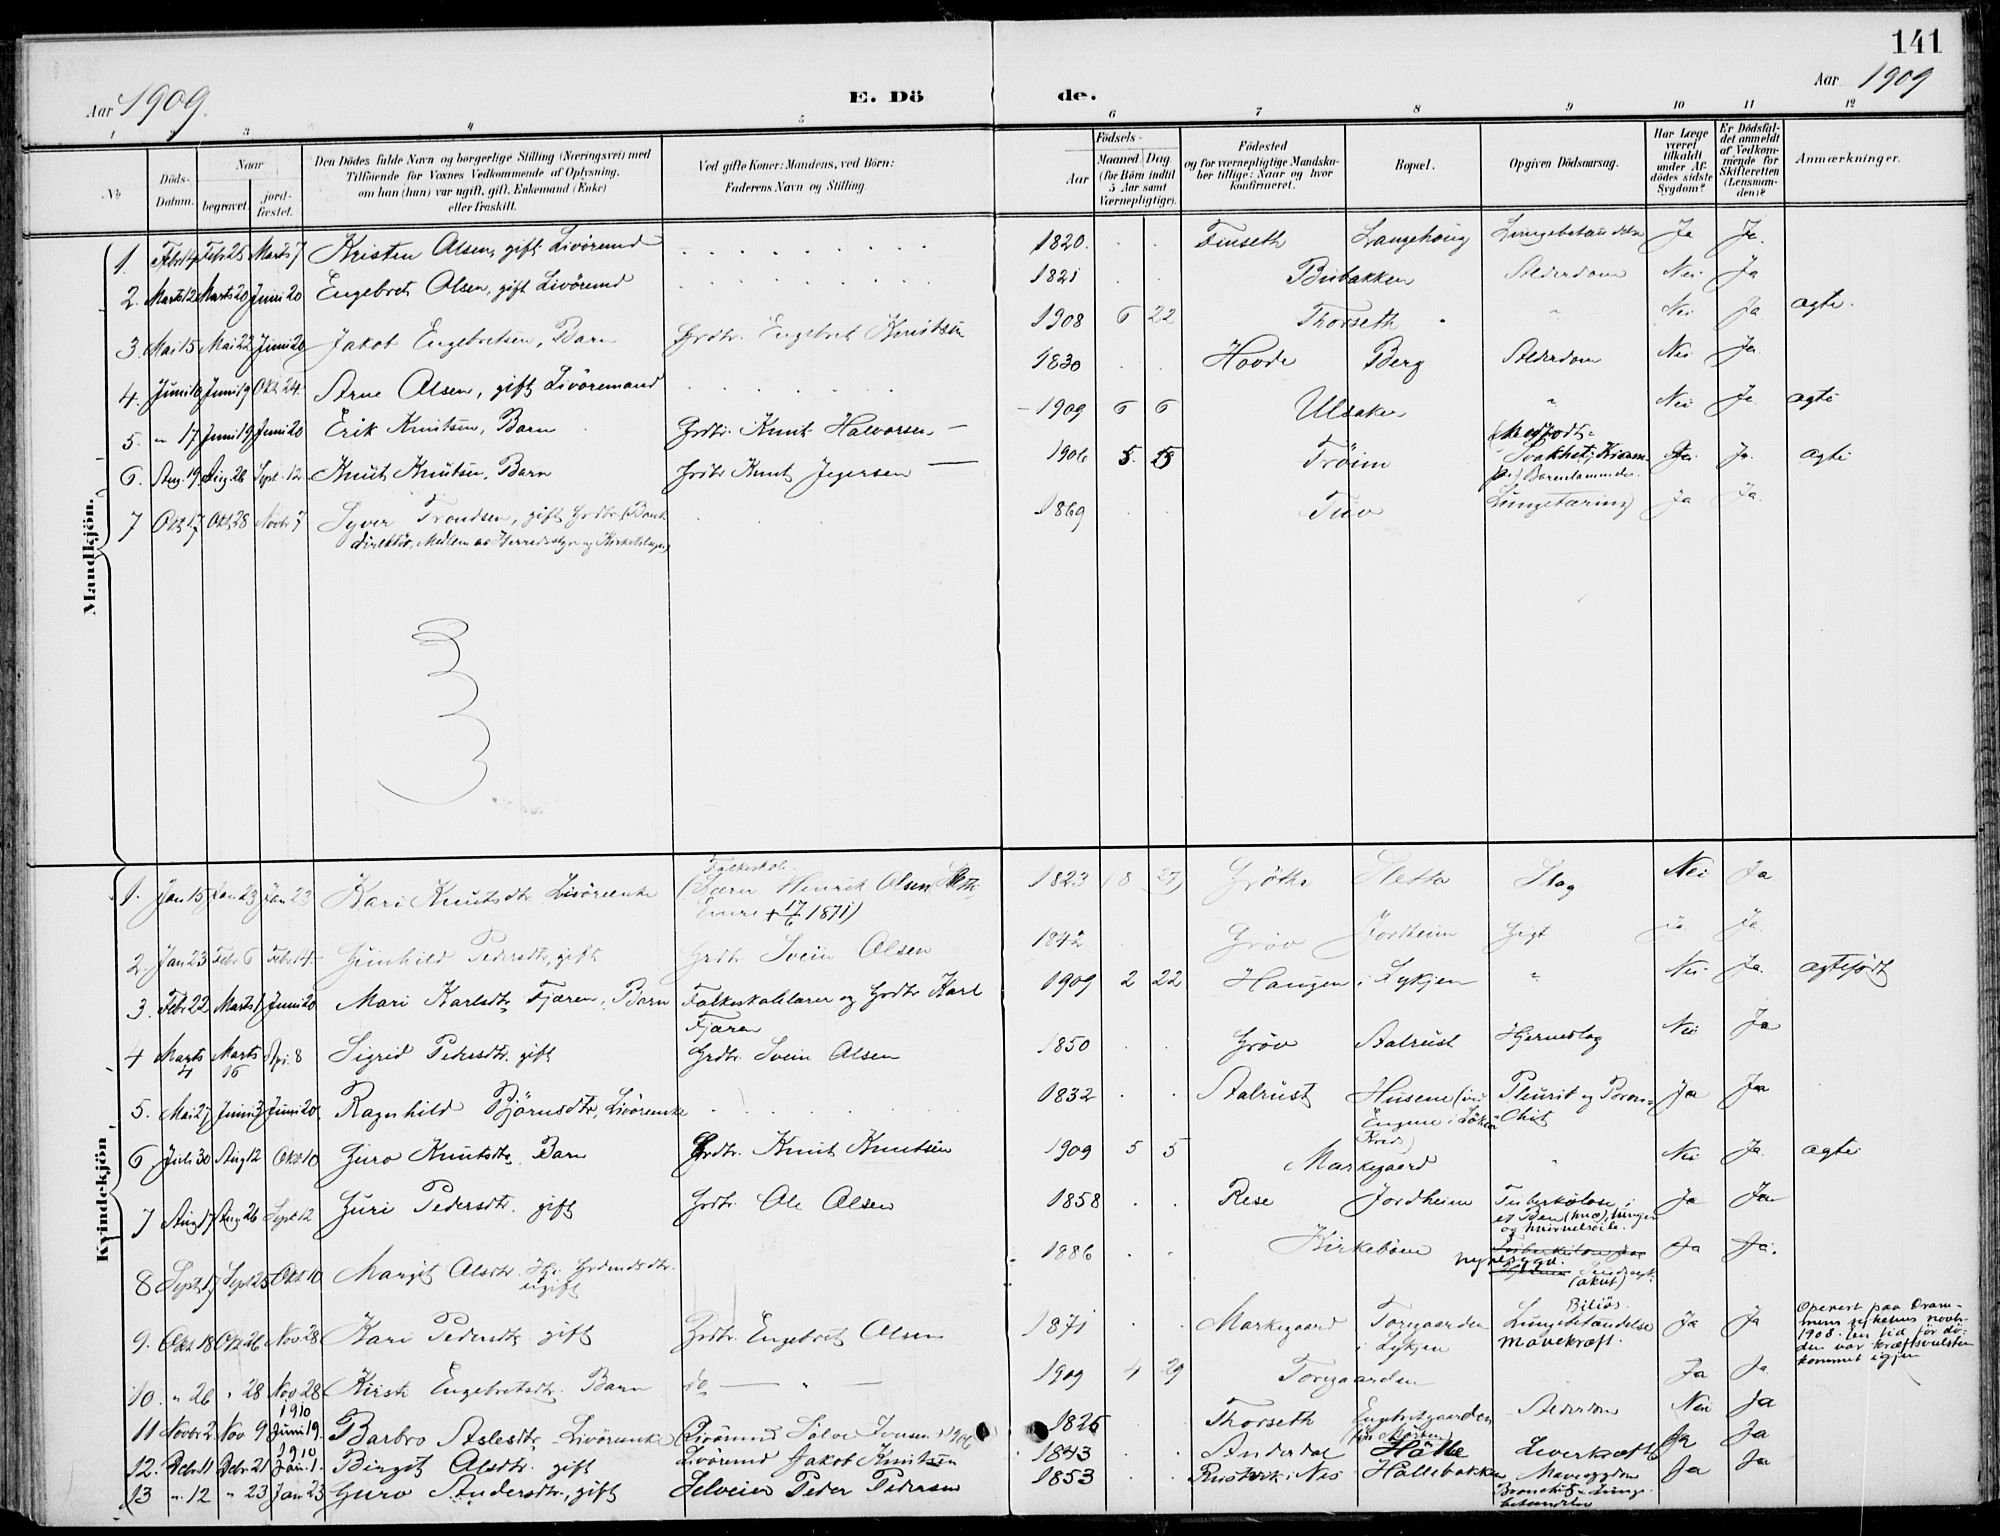 141
Aar 1909.
E. Döde.
Aar 1909
1 2 3 4 5 6 7 8 9 10 11 12
No
Döds-Datum.
Naar
begravet.
jord-fæstet.
Den Dödes fulde Navn og borgerlige Stilling (Næringsvei) med
Tilföiende for Voxnes Vedkommende af Oplysning,
om han (hun) var ugift, gift, Enkemand (Enke)
eller fraskilt.
Ved gifte Koner: Mandens, ved Börn:
Faderens Navn og Stilling.
Födsels-
Aar
Maaned. Dag.
(for Börn indtil
5 Aar samt
Værnepligtige).
Födested
og for værnepligtige Mandska-
ber tillige: Naar og hvor
konfirmeret.
Bopæl.
Opgiven Dödsaarsag.
Har Læge
været
tilkaldt
under Af-
dödes sidste
Sygdom?
Er Dödsfal-
det anmeldt
af Vedkom-
mende for
Skifteretten
(Lensman-
den)?
Anmærkninger.
Mandkjön.
1. Febr 14 Febr 25 Marts 7 Kristen Olsen, gift Livöremd 1820. Finseth Langehaug Lungebetændelse Ja Ja.
2. Marts 12 Marts 20 Juni 20 Engebret Olsen, gift Livöremd 1821 Bisbakken Alderdom Nei Ja
3. Mai 15 Mai 22 Juni 20 Jakob Engebretsen, Barn Grdbr. Engebret Knutsen 1908 6 22 Thorseth " Nei Ja ægte.
4. Juni 10 Juni 19 Okt. 24. Arne Olsen, gift Livöremand 1830 Hovde Berg Alderdom Nei Ja
5. " 17 Juni 19 Juni 20 Erik Knutsen, Barn Grdbr. Knut Halvorsen 1909 6 6 Ulsaker " Nei Ja ægte
6. Aug. 19. Aug 28 Sept. 12 Knut Knutsen, Barn Grdbr Knut Jegersen 1906 5. Tröim (Medfödt-
Svakhet; Kram-
pe.) Barnelammelse Ja. ægte
7 Okt 17 Okt 28 Novbr 7 Syver Trondsen, gift Grdbr (Bank
direktör, Medlem av Herredsstyre og Kirketilsyn) 1869 Tuv Lungetæring Ja Ja.
Kvindekjön
1. Jan 15 Jan 23 Jan 23 Kari Knutsdtr Livöreenke Folkeskole-
(Lærer Henrik Olsen
17/6 1871) 1823 (8 27) Gröthe Sletto Slag Nei Ja
2. Jan 23 Febr 6 Febr 14 Gunhild Pedersdtr, gift Grdbr Svein Olsen 1842 Gröv Jordheim Gigt Ja Ja
3. Febr 22 Marts 1 Juni 20 Mari Karlsdtr Fjæren, Barn Folkeskolelærer og Grdbr Karl
Fjæren 1909 2 22 Haugen i Lykjen " Nei Ja. ægtefödt
4 Marts 4 Marts 16 Apr. 8 Sigrid Pedersdtr. gift Grdbr. Svein Olsen 1850 Gröv Aalrust Hjerneslag Nei Ja
5. Mai 27 Juni 3 Juni 20 Ragnhild Björnsdtr, Livöreenke 1832 Aalrust Husene (
Kreds) Pleurit og Bron-
chit Ja Ja
6. Juli 30 Aug 12 Okt 10 Guro Knutsdtr. Barn Grdbr. Knut Knutsen 1909 5 5 Markegaard " Nei Ja ægte
7 Aug 17 Aug 26 Sept 12 Guri Pedersdtr. gift Grdbr. Ole Olsen 1858 Rese Jordheim Tuberkulose i
et Ben (knæ), lunger
og hvirvelsöile. Ja Ja
8 Sept 17 Sept 25 Okt 10 Margit Olsdtr.
ugift 1886 Kirkeböen Nyresygd.
(akut) Ja Ja.
9. Okt 18 Okt 26 Nov 28 Kari Pedersdtr gift Grdbr. Engebret Olsen 1871 Markegaard Toregaarden
i Lykjen Biliös.
Lungebetændelse
Mavekræft. Ja Ja Operert paa Dram-
mens sykehus novbr
1908. En tid för dö-
den var kræftsvulsten
kommet igjen
10. " 26 " 28 Nov 28 Kirsti Engebretsdtr. Barn do — " — 1909 4 29 Toregaarden Ja Ja
11 Novbr 2 Nov 9 1910 Juni 19 Barbro Aslesdtr, Livöreenke (Livöremd Sölve Iversen 1826 Thorseth Engebretgaarden Alderdom Nei Ja
12. Debr. 11 Debr. 21 1910 Jan. 1. Birgit Olsdtr. gift Livöremd Jakob Knutsen 1843 Anderdal Hölle Leverkræft Ja Ja
13 " 12 " 23 Jan 23 Guro Andersdtr, gift Selveier Peder Pedersen 1853 Nes Höllebakken Mavesygdom
Bronchit-Lunge-
betændelse Ja Ja